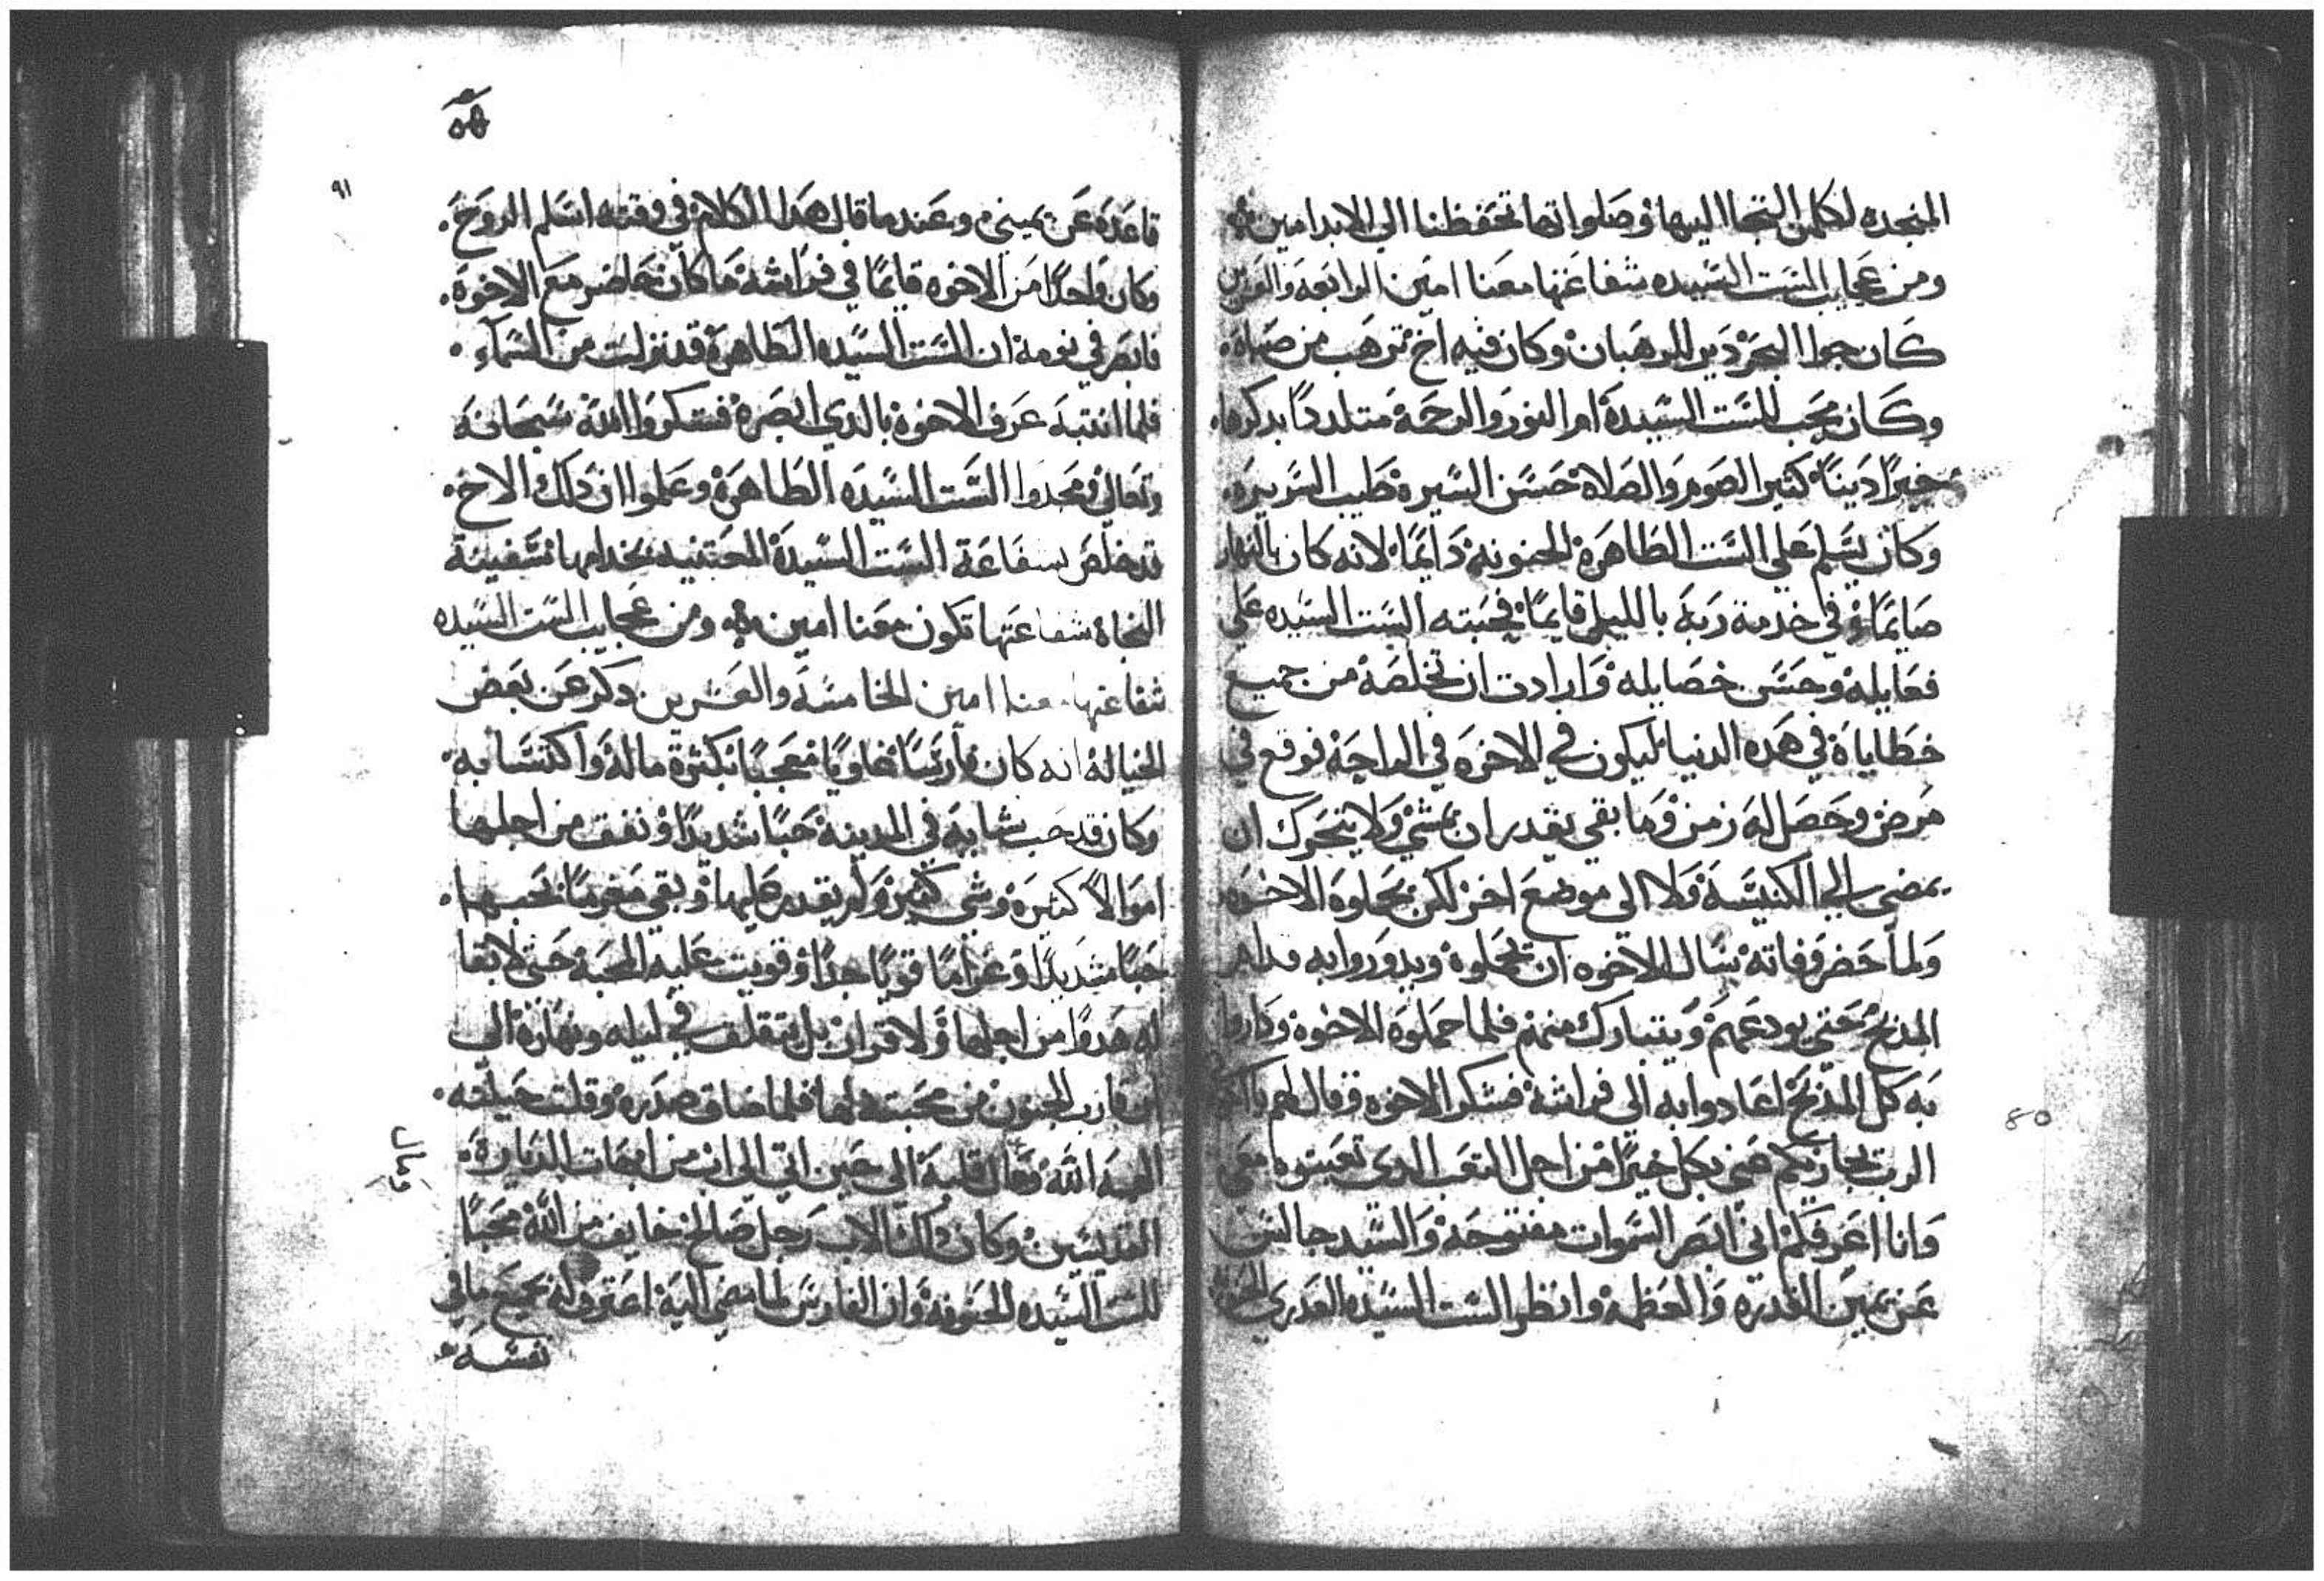 المنجده لكلمن التجا اليها وصلواتها تحفظنا الي الابد امين
ومن عجايب الست السيده شفاعتها معنا امين الرابعه والعشرين
كان جوا البحر دير للرهبان وكان فيه اخ ترهب من صباه
وكان يحب للست السيدة ام النور والرحمة متلددًا بدكرها
خيرًا دينًا كثير الصوم والصلاة حسن السيرة طيب السريرة
وكان يسلم علي الست الطاهرة الحنونة دايمًا لانه كان بالنهار
صايمًا وفي خدمة ربه بالليل قايمًا فحبته الست السيده علي
فعايله وحسن خصايله وارادت ان تخلصه من جميع
خطاياة في هده الدنيا ليكون في الاخره في الراحة فوقع في
مرض وحصل له زمن وما بقي يقدر ان يمشي ولا يتحرك ان
يمضي الي الكنيسة ولا الي موضع اخر لكن يحملوه الاخوه
ولما حضر وفاته سال الاخوه ان تحملوة ويدوروا به
المدبح حتي يودعهم ويتبارك منهم فلما حملوه الاخوة وداروا
به كل المدبح اعادوا به الي فراشه فشكر الاخوه وقال لهم
الرب يجازيكم عني بكل خيرًا من اجل التعب الدي تعبتوه معي
وانا اعرفكم اني ابصر السموات مفتوحة والسيد جالس
عن يمين القدره والعظمة وانظر الست السيده العدري الحنونة
٥٩
٩١
قاعده عن يميني وعندما قال هدا الكلام في وقته اسلم الروح
وكان واحدًا من الاخوه قايمًا في فراشه ما كان حاضر مع الاخوة
فابصر في نومه ان الست السيده الطاهرة قد نزلت من السماء
فلما انتبه عرف الاخوة بالدي ابصرة فشكروا الله سبحانه
وتعالي ومجدوا الست السيده الطاهرة وعلموا ان دلك الاخ
قد خلص بشفاعة الست السيدة المعتنيه بخدامها سفينة
النجاة شفاعتها تكون معنا امين ومن عجايب الست السيده
شفاعتها معنا امين الخامسه والعشرين دكر عن بعض
الخياله انه كان فارسًا غاويًا معجبًا بكثرة ماله واكتسابه
وكان قد حب شابه في المدينة حبًا شديدًا ونفق من اجلها
اموالًا كثيرة وشي كثير ولم يقدر عليها وبقي مغرمًا بحبها
حبًا شديدًا وغرامًا قويًا جدًا وقويت عليه المحبة حتي لا بقا
له هدوًا من اجلها ولا قرار بل متقلق في ليله ونهاره الي
ان قارب الجنون من محبته لها فلما ضاق صدره وقلت حيلته
الهمه الله قلبه الي حين اتي الي اب من ابهات الديارة
القديسين وكان دلك الاب رجل صالح خايف من الله محبًا
للست السيده الحنونة وان الفارس لما مضي اليه اعترف له بجميع ما في
نفسه